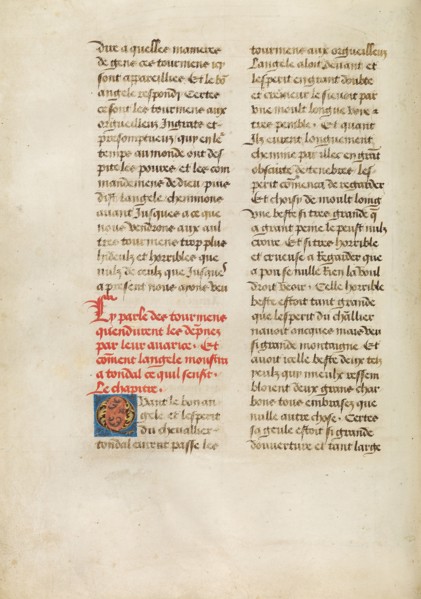 dire a quelles manieres
de gens ces tourmens icy
sont appareillies Et le bō
angele respondy Certes
ce sont les tourmens aux
orgueilleux Ingrats et
presompteux qui en le
temps au monde ont des
pite les poures et les com
mandemens de dieu puis
dist langele cheminons
auant Jusques a ce que
nous vendrons aux aul
tres tourmens trop plus
hideulx et horribles que
nulz de ceulx que Jusques
a present nous ayons veu
Cy parle des tourmens
quendurent les dāpnez
par leur auarice. Et
cōment langele moustra
a tondal ce quil sensit.
Le chapitre.
Quant le bon an
gele et lesperit
du cheuallier
tondal eurent passe les
tourmens aux orgueilleux
Langele aloit deuant et
lesperit en grant doubte
et cremeur le sieuoit par
vne moult longue voie et
tres penible. Et quant
Ilz eurent longuement
chemine par illec en grāt
obscurte de tenebres les
perit cōmenca de regarder
Et choisy de moult long
vne beste si tres grande q̄
a grant peine le peust nulz
croire. Et si tres horrible
et crueuse a Regarder que
a pou se nulle Rien la voul
droit veoir. Celle horrible
beste estoit tant grande
que lesperit du chlīer
nauoit ancques mais veu
si grande montaigne. Et
auoit icelle beste deux telz
yeulz qui mieulx ressem
bloient deux grans char
bons tous embrasez que
nulle autre chose. Certes
sa geule estoit si grande
douuerture et tant large